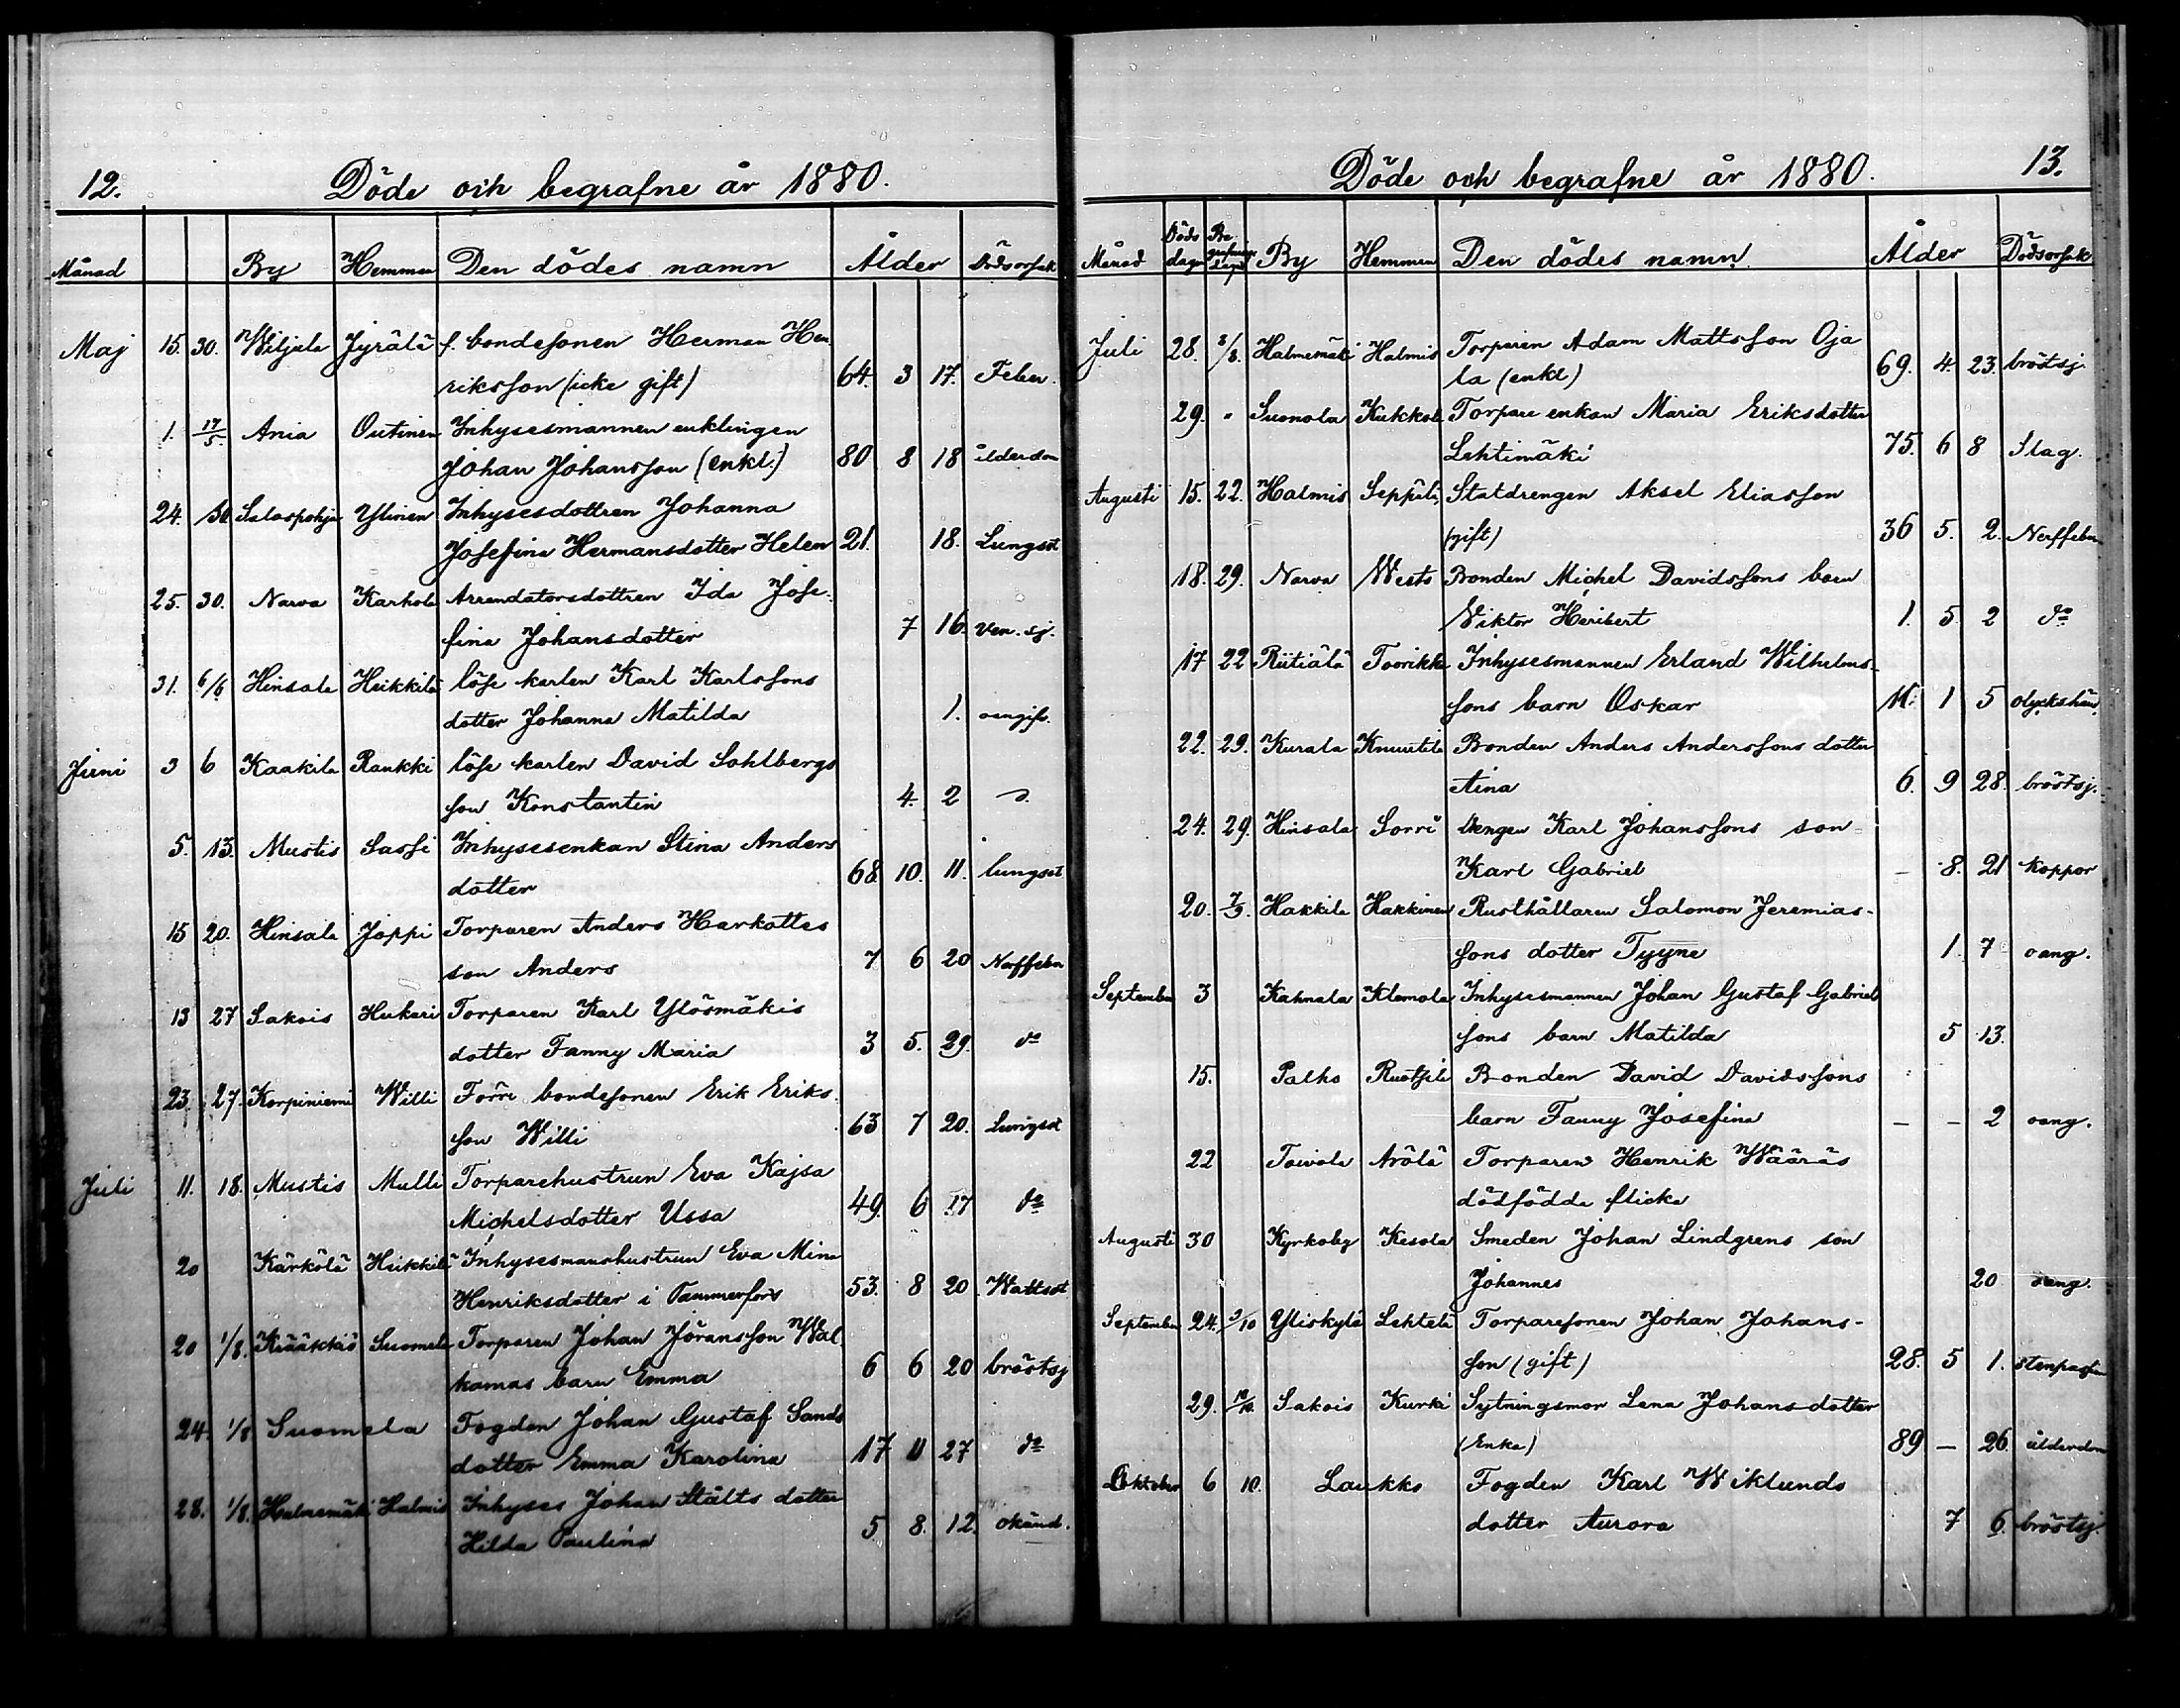 12.
Döde och begrafne år 1880.
Månad By Hemman Den dödes namn Ålder Dödsorsak
Maj 15. 30. Wiljala Jyrälä f. bondesonen Herman Hen
riksson (icke gift) 64. 3 17. Feber.
1. 17/5. Ania Outinen Inhysesmannen enklingen
Johan Johansson (enkl.) 80 8 18 ålderdom
24. 30. Salospohja Ylinen Inhysesdottren Johanna
Josefina Hermansdotter Helen 21. 18. Lungsot
25. 30. Narva Karhola Arrendatorsdottren Ida Jose-
fina Johansdotter 7 16. Ven. sj.
31. 6/6 Hinsala Heikkilä löse karlen Karl Karlssons
dotter Johanna Matilda 1. oangifv.
Juni 3 6 Kaakila Rankki löse karlen David Sohlbergs
son Konstantin 4. 2
5. 13. Mustis Sassi Inhysesenkan Stina Anders
dotter 68 10. 11. lungsot
15 20. Hinsala Joppi Torparen Anders Harkottes
son Anders 7 6 20 Nerffeber
13 27 Sakois Hukari Torparen Karl Ylösmäkis
dotter Fanny Maria 3 5. 29. do
23. 27. Korpiniemi Willi Förre bondesonen Erik Eriks
son Willi 63 7 20. Lungsot
Juli 11. 18. Mustis Mulli Torparehustrun Eva Kajsa
Michelsdotter Ussa 49. 6 17 do
20 Kärkölä Heikkilä Inhysesmanshustrun Eva Mina
Henriksdotter i Tammerfors 53. 8 20 Wattsot
20 1/8. Krääkkiö Suomela Torparen Johan Jöransson Wal
kamas barn Emma 6 6 20 bröstsj
24. 1/8 Suomela Fogden Johan Gustaf Sands
dotter Emma Karolina 17 11 27 do
28. 1/8. Halmemäki Halmis Inhyses Johan Stålts dotter
Hilda Paulina 5 8. 12. okänd.
Döde och begrafne år 1880.
13.
Månad Döds dagar Be grafnings dagar By Hemman Den dödes namn Ålder Dödsorsak
Juli 28. 8/8. Halmemäki Halmis Torparen Adam Mattsson Oja
la (enkl) 69. 4. 23. bröstsj.
29. " Suonola Kukkola Torpare enkan Maria Eriksdotter
Lehtimäki 75. 6 8 Slag.
Augusti 15. 22. Halmis Seppälä Statdrengen Aksel Eliasson
(gift) 36 5. 2. Nerffeber
18. 29. Narva Werts Bonden Michel Davidssons barn
Viktor Heribert 1. 5 2 do
17 22 Riitiälä Toorikka Inhysesmannen Erland Wilhelms-
sons barn Oskar 11. 1 5 olyckshän.
22. 29. Kurala Knuutila Bonden Anders Anderssons dotter
Aina 6. 9 28. bröstsj.
24. 29. Hinsala Sorri drengen Karl Johanssons son
Karl Gabriel – 8. 21 koppor
20. 7/9. Hakkila Hakkinen Rusthållaren Salomon Jeremias-
sons dotter Tyyne 1. 7 oang.
September 3 Kahnala Klemola Inhysesmannen Johan Gustaf Gabriels
sons barn Matilda 5 13.
15. Palho Ruotsila Bonden David Davidssons
barn Fanny Josefina – – 2 oang.
22 Toivola Arölä Torparen Henrik Wääräs
dödfödda flicka
Augusti 30 Kyrkoby Kesola Smeden Johan Lindgrens son
Johannes 20 oang.
September 24. 3/10 Yliskylä Lehtelä Torparesonen Johan Johans-
son (gift) 28. 5 1. stenpassion
29. 10/10. Sakois Kurki Sytningsmor Lena Johansdotter
(Enka) 89 – 26. ålderdom
Oktober 6 10. Laukko Fogden Karl Wiklunds
dotter Aurora 7 6. bröstsj.